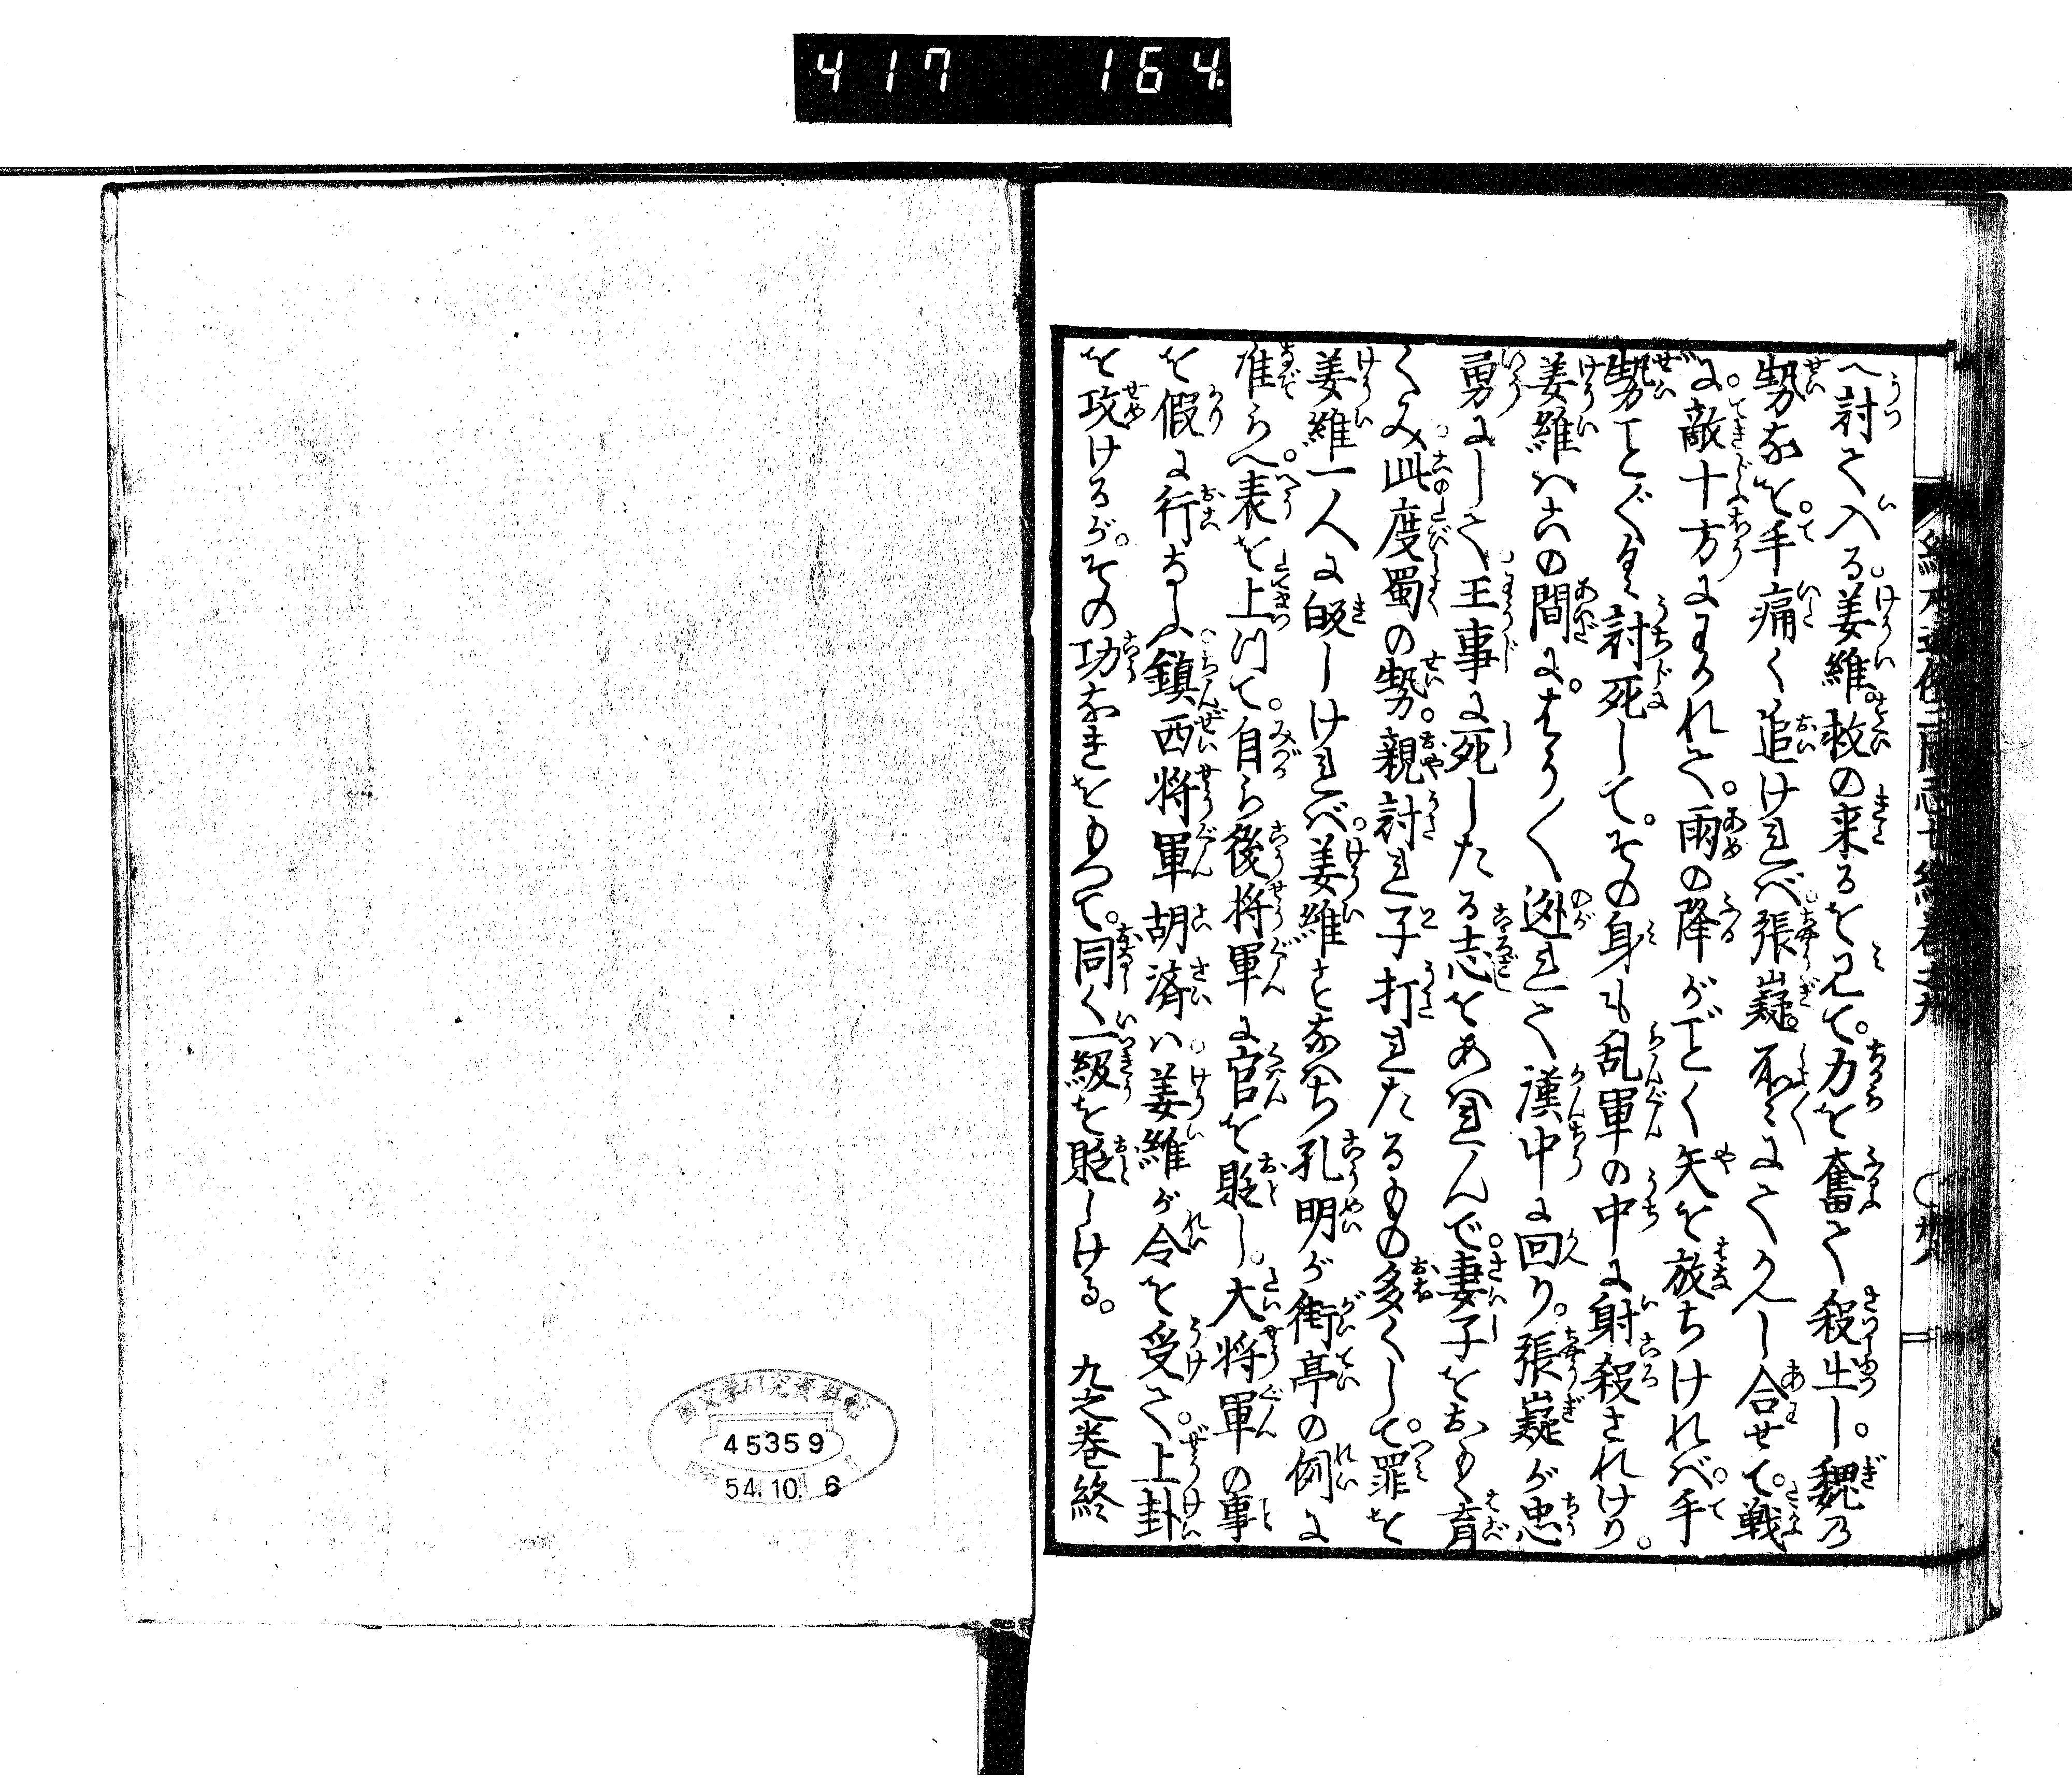 417 164
へ討て入る。姜維。救の来るを見て。力を奮て殺出し。魏乃
勢なを。手痛く追けれべ。張嶷。
に。敵十方に。雨の降がごとく矢を放ちけれべ。手
勢ことぐく討死して。その身も乱軍の中に射殺されけり。
姜維ハこの間に。やう〳〵遁れて漢中に回り。張嶷が忠
勇にして。王事に死したる志をあはれんで。妻子をおもく育
くみ。此度蜀の勢。親討れ子打れたるもの多くして。罪を
姜維一人に皈しけれべ。姜維すなハち孔明が街亭の例に
准らへ。表を上川て。自ら後将軍に官を貶し。大将軍の事
を假に行なふ。鎮西将軍胡済ハ。姜維が令を受て。上卦
を攻けるが。その功なきをもつて。同く一級を貶しける。 九之巻終
45359
54.10.6